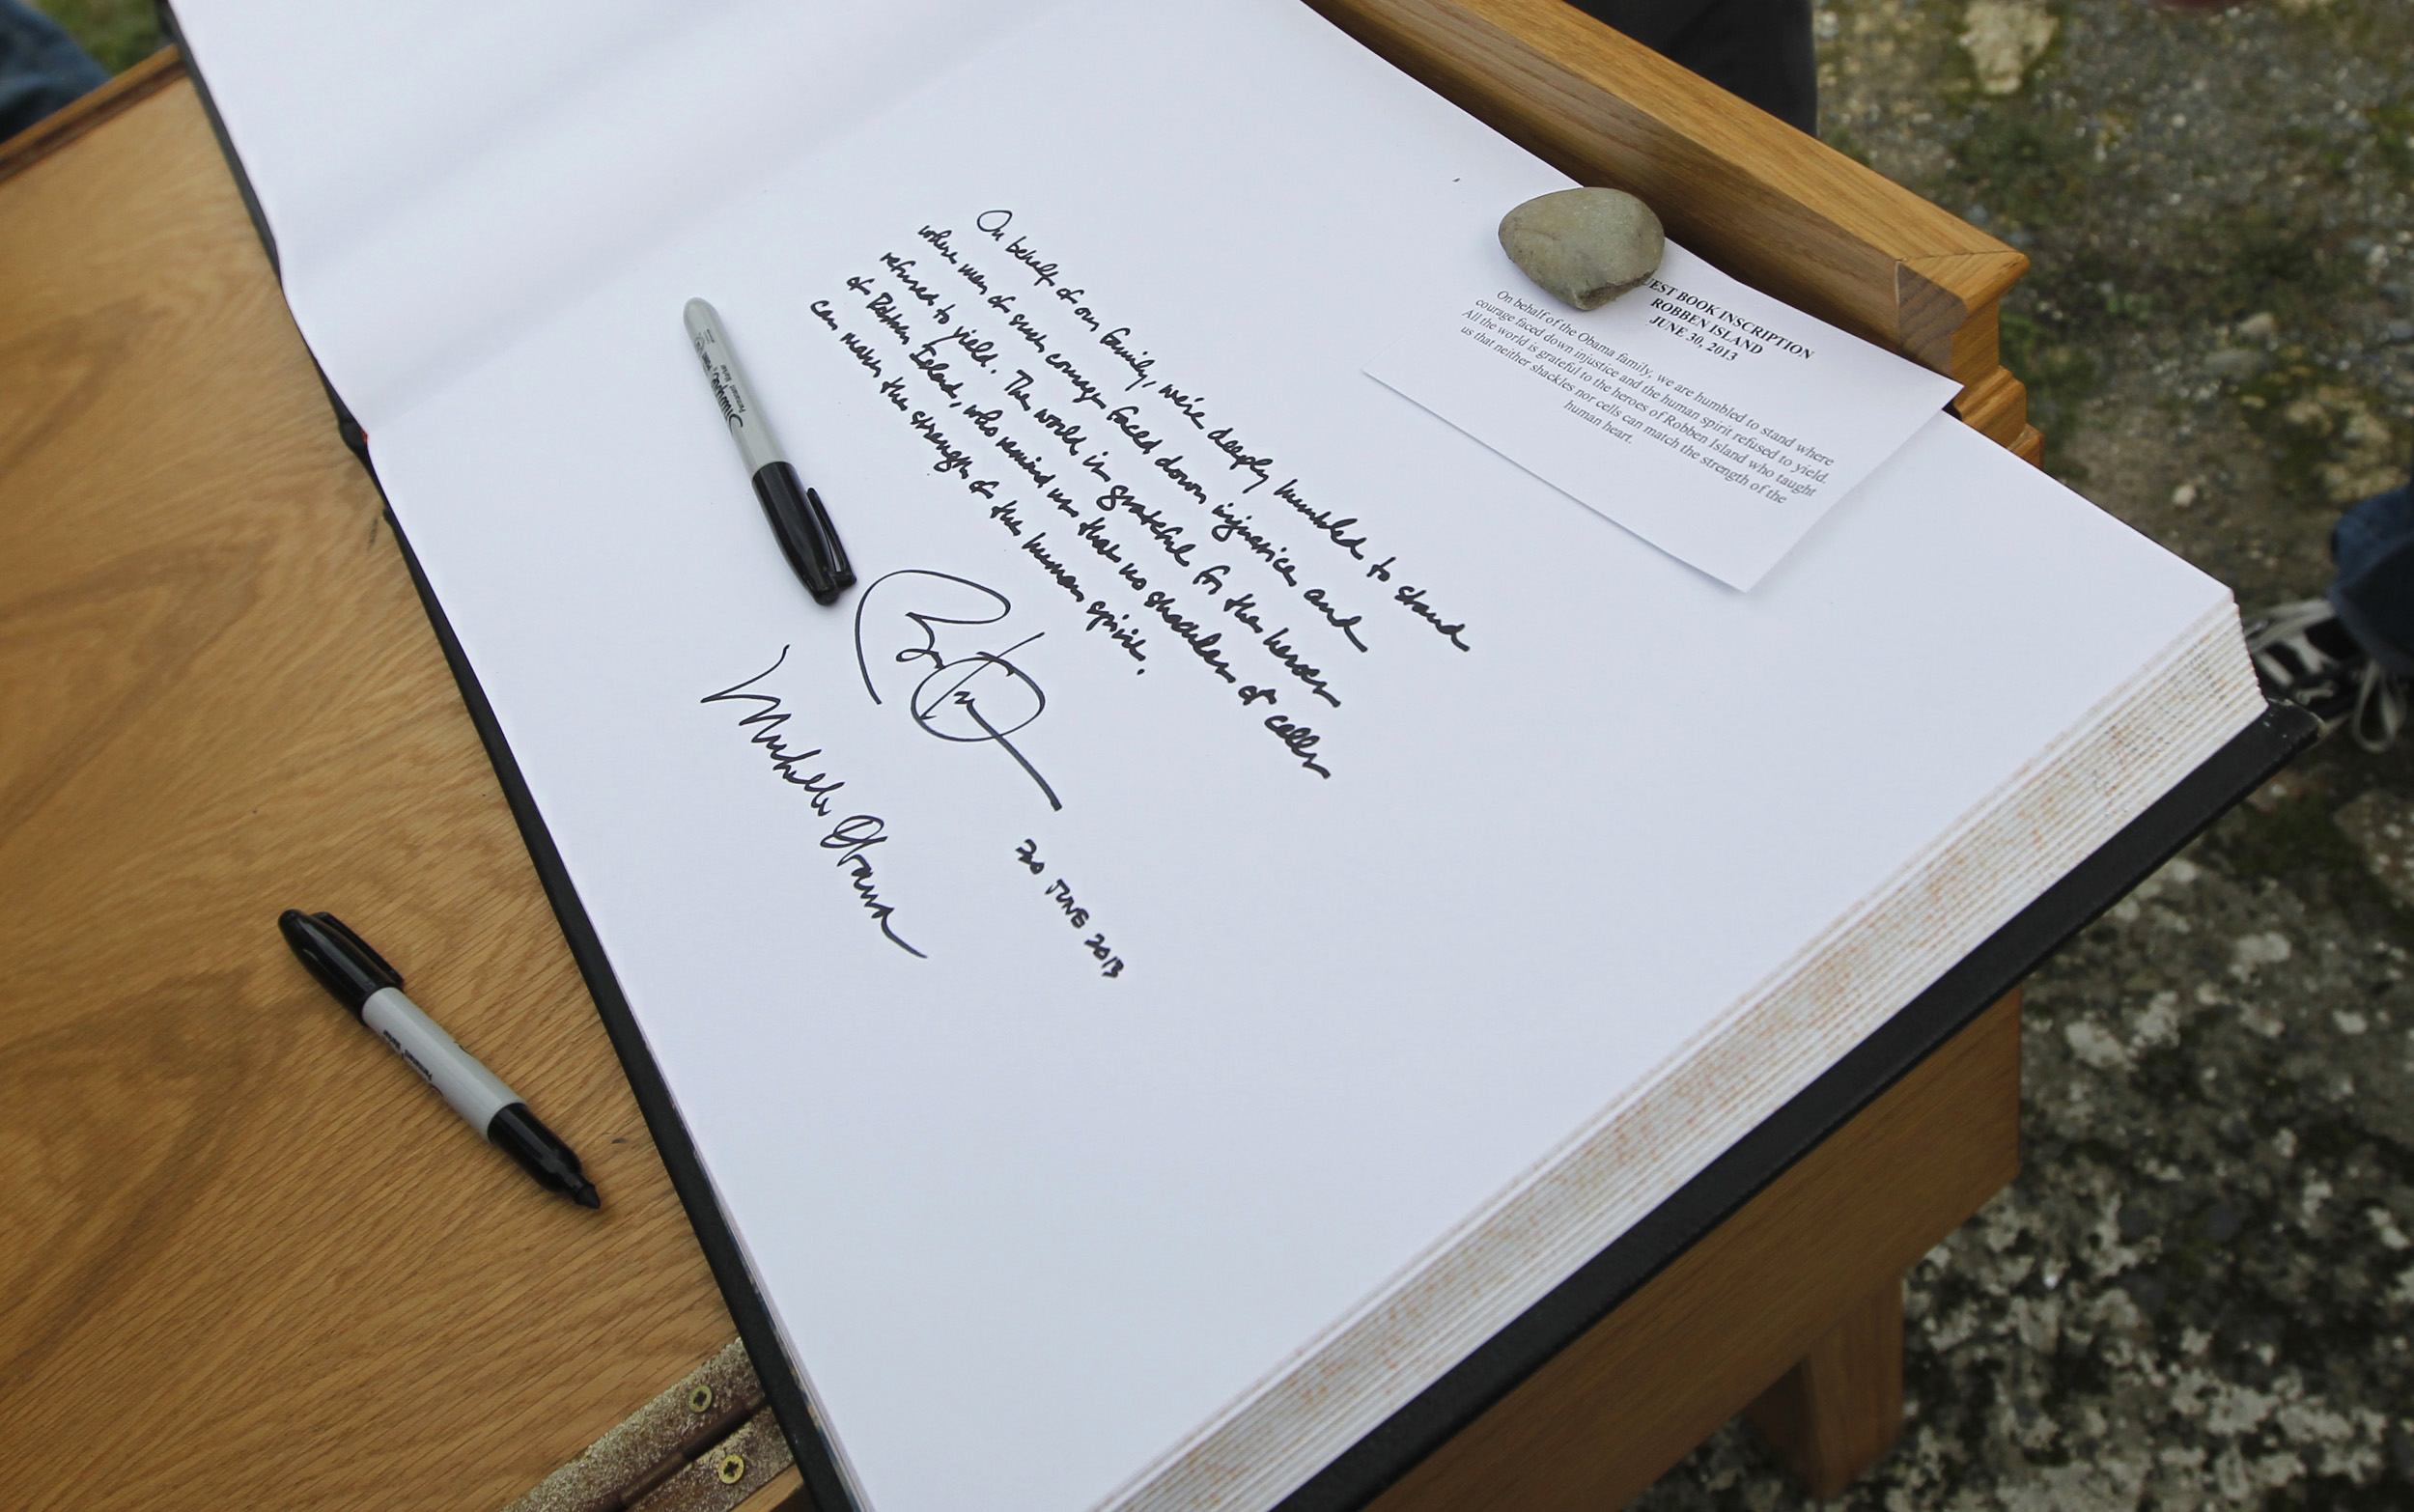 On behalf of our family, we're deeply humbled to stand
where men of such courage faced down injustice and
refused to yield. The world is grateful for the heroes
of Robben Island, who remind us that no shackles or cells
can match the strength of the human spirit.
Michelle Obama
30 JUNE 2013
UEST BOOK INSCRIPTION
ROBBEN ISLAND
JUNE 30, 2013
On behalf of the Obama family, we are humbled to stand where
courage faced down injustice and the human spirit refused to yield.
All the world is grateful to the heroes of Robben Island who taught
us that neither shackles nor cells can match the strength of the
human heart.
Permanent Marker
Permanent Marker